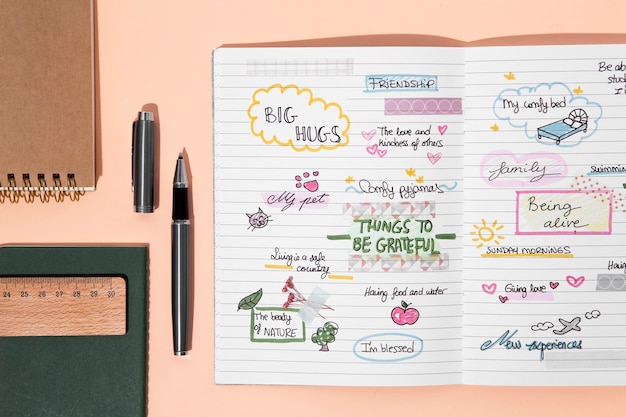 FRIENDSHIP
BIG
HUGS
The love and
kindness of others
My pet
Comfy pyjamas
THINGS TO
BE GRATEFUL
Living is a safe
country
Having food and water
The beauty
of NATURE
I'm blessed
Be ab
stud
I i
My comfy bed
family
Swimmin
Being
alive
SUNDAY MORNINGS
Giving love
New experiences
24 25 26 27 28 29 30